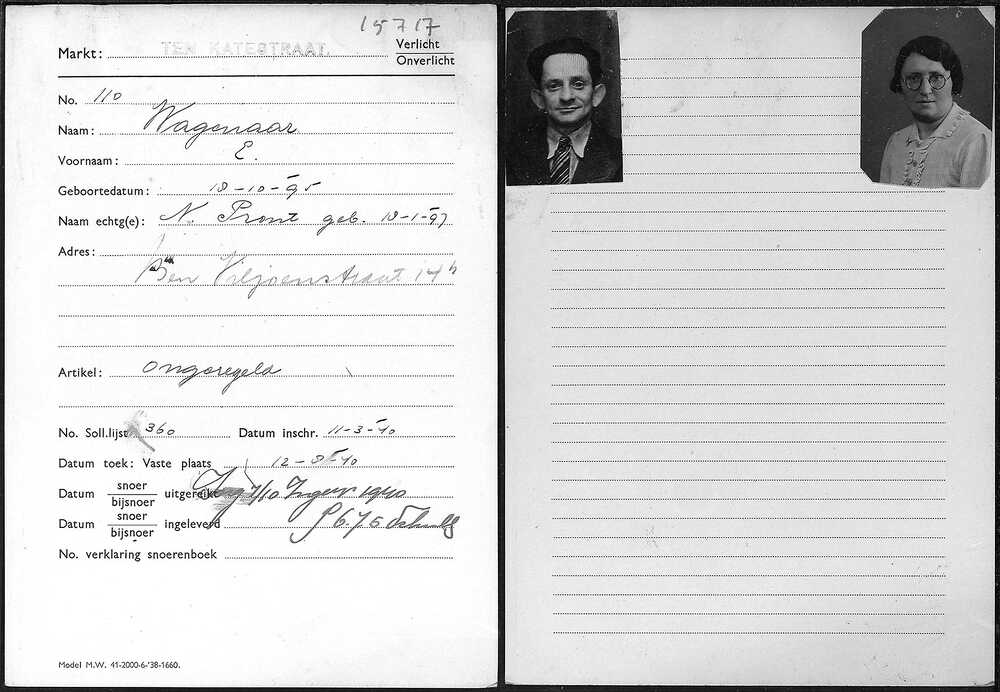 15717
Markt: TEN KATESTRAAT Verlicht
Onverlicht
No. 110
Naam: Wagenaar
Voornaam: E.
Geboortedatum: 18-10-95
Naam echtg(e): N. Pront geb. 18-1-97
Adres:
Ben Viljoenstraat 14 h
Artikel: ongeregeld
No. Soll.lijst 360 Datum inschr. 11-3-40
Datum toek: Vaste plaats 12-8-40
Datum snoer
bijsnoer uitgereikt 7/10 1940
Datum snoer
bijsnoer ingeleverd
No. verklaring snoerenboek
Model M.W. 41-2000-6-'38-1660.